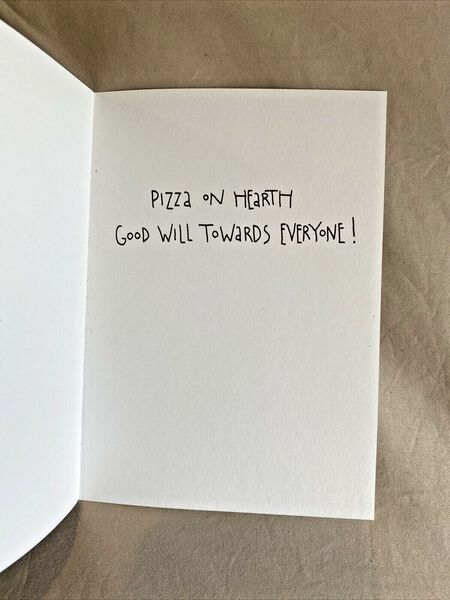 Pizza on Hearth
Good Will Towards Everyone!